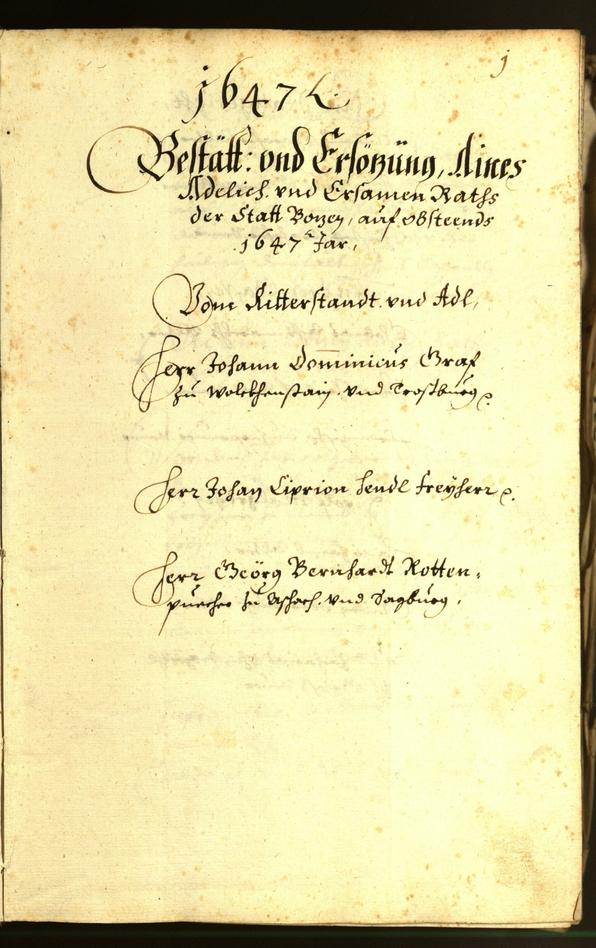 1
1647 L.
Bestätt: vnd Ersözung, Aines
Adelich. vnd Ersamen Raths
der Statt Bozen, auf obsteends
1647 Jar,
Vom Ritterstandt. vnd Adl,
Herr Johann Dominicus Graf
zu Wolckhenstain. vnd Trostburg
Herr Johan Ciprion Hendl Freyherr
Herr Geörg Bernhardt Rotten-
puecher zu Aschach. vnd Sagburg,